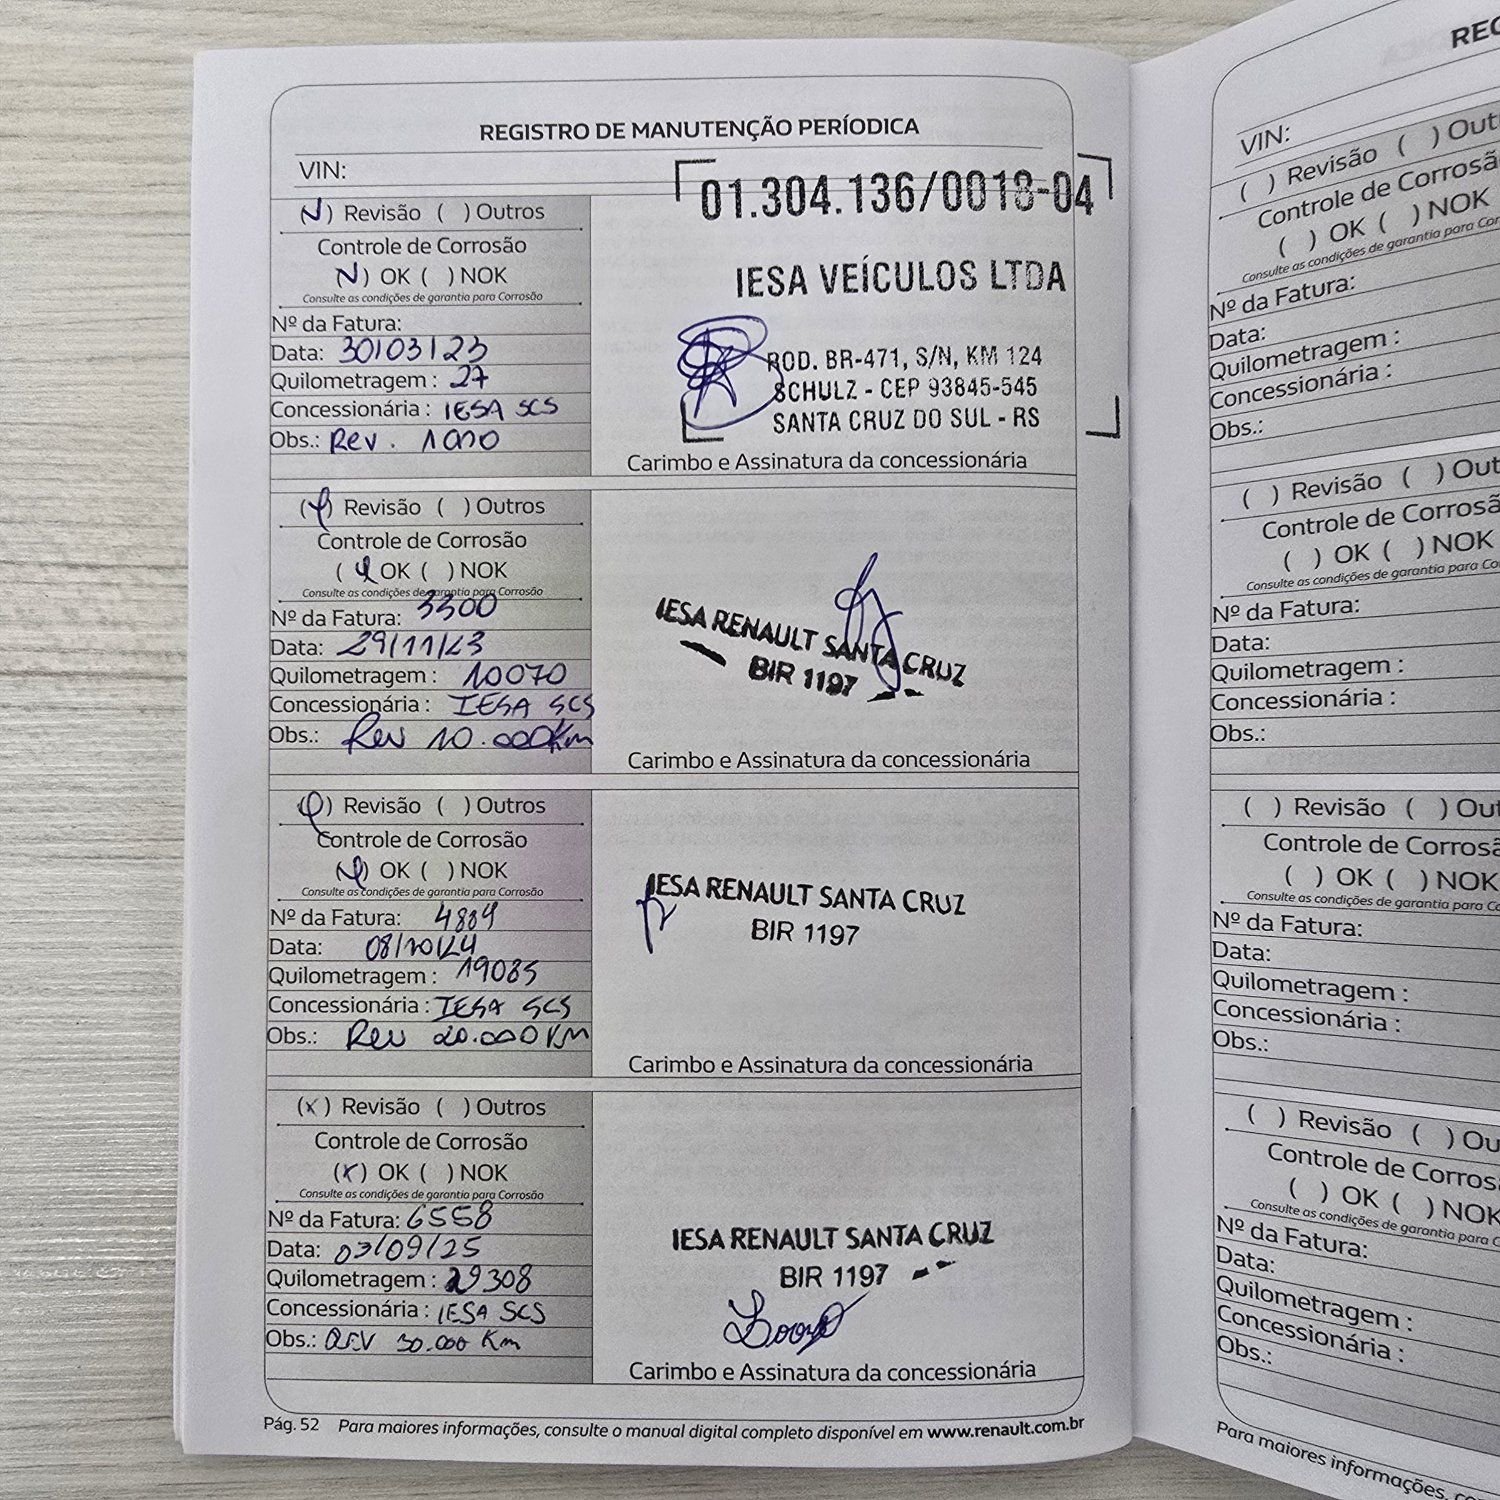 REGISTRO DE MANUTENÇÃO PERÍODICA
VIN:
01.304.136/0018-04
IESA VEÍCULOS LTDA
ROD. BR-471, S/N, KM 124
SCHULZ - CEP 93845-545
SANTA CRUZ DO SUL - RS
( ) Revisão ( ) Outros
Controle de Corrosão
( ) OK ( ) NOK
Consulte as condições de garantia para Corrosão
Nº da Fatura:
Data: 30/03/23
Quilometragem : 27
Concessionária : IESA SCS
Obs.: Rev.
Carimbo e Assinatura da concessionária
( ) Revisão ( ) Outros
Controle de Corrosão
( ) OK ( ) NOK
Consulte as condições de garantia para Corrosão
Nº da Fatura: 3300
Data: 29/11/23
Quilometragem : 10070
Concessionária : IESA SCS
Obs.: Rev 10.000Km
IESA RENAULT SANTA CRUZ
BIR 1197
Carimbo e Assinatura da concessionária
( ) Revisão ( ) Outros
Controle de Corrosão
( ) OK ( ) NOK
Consulte as condições de garantia para Corrosão
Nº da Fatura:
Data: 08/10/24
Quilometragem : 19085
Concessionária : IESA SCS
Obs.: Rev 20.000KM
IESA RENAULT SANTA CRUZ
BIR 1197
Carimbo e Assinatura da concessionária
(x) Revisão ( ) Outros
Controle de Corrosão
(x) OK ( ) NOK
Consulte as condições de garantia para Corrosão
Nº da Fatura: 6558
Data: 03/09/25
Quilometragem : 29308
Concessionária : IESA SCS
Obs.: REV 30.000 Km
IESA RENAULT SANTA CRUZ
BIR 1197
Carimbo e Assinatura da concessionária
Pág. 52 Para maiores informações, consulte o manual digital completo disponível em www.renault.com.br
REG
VIN:
( ) Revisão ( ) Out
Controle de Corrosã
( ) OK ( ) NOK
Consulte as condições de garantia para Cor
Nº da Fatura:
Data:
Quilometragem :
Concessionária :
Obs.:
( ) Revisão ( ) Out
Controle de Corrosã
( ) OK ( ) NOK
Consulte as condições de garantia para Co
Nº da Fatura:
Data:
Quilometragem :
Concessionária :
Obs.:
( ) Revisão ( ) Ou
Controle de Corrosã
( ) OK ( ) NOK
Consulte as condições de garantia para Co
Nº da Fatura:
Data:
Quilometragem :
Concessionária :
Obs.:
( ) Revisão ( ) Ou
Controle de Corros
( ) OK ( ) NOK
Consulte as condições de garantia para C
Nº da Fatura:
Data:
Quilometragem :
Concessionária :
Obs.:
Para maiores informações, co